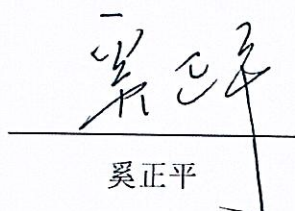 奚正平
奚正平